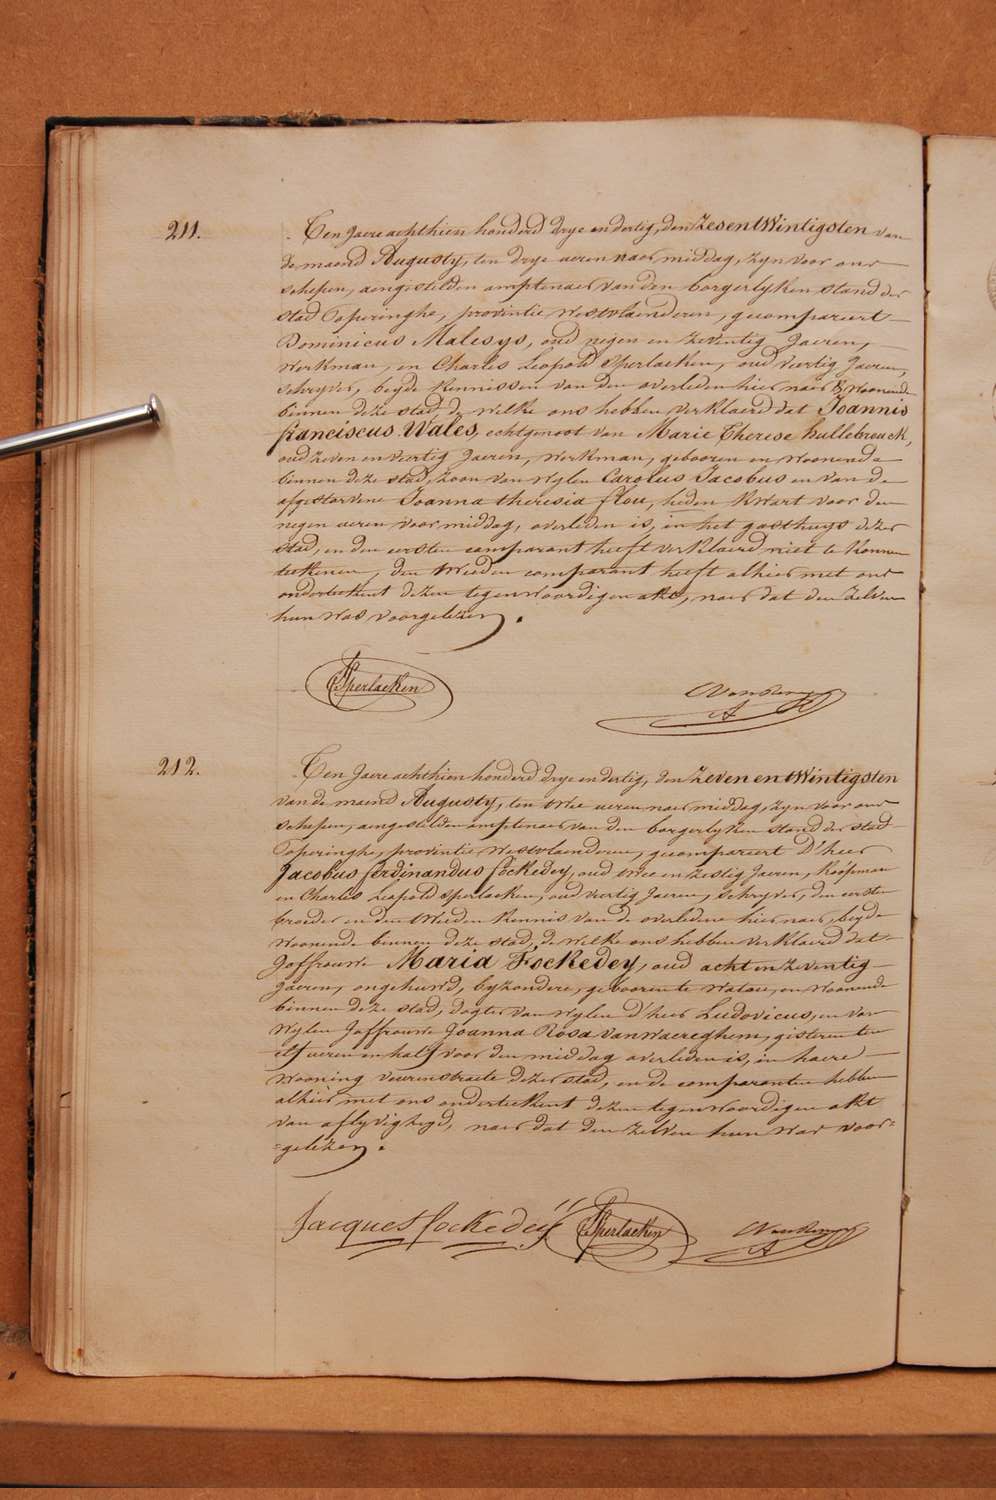 211.
Ten Jaere achthien honderd drye en dertig, den zesentWintigsten van
de maend Augusty, ten drye ueren naer middag, zyn voor ons
schepen, aengestelden amptenaer van den borgerlyken stand der
stad Poperinghe, provintie Westvlaenderen, gecompareert
Dominicus Malesys, oud negen en zeventig Jaeren,
Werkman, en Charles Leopold Sperlaeken, oud veertig Jaeren,
schryver, beyde Kennissen van den overleden hier naer & Woonende
binnen deze stad, de welke ons hebben verklaerd dat Joannis
franciscus Wales, echtgenoot van Marie Therese hullebrouck,
oud zeven en veertig Jaeren, Werkman, gebooren en Woonende
binnen deze stad, zoon van Wylen Carolus Jacobus en van de
afgestorvene Joanna theresia flou, heden Kwart voor den
negen ueren voormiddag, overleden is, in het gasthuys dezer
stad, en den eersten comparant heeft verklaerd niet te Konnen
teekenen, den tWeeden comparant heeft alhier met ons
onderteekent dezen tegenWoordigen akte, naer dat den Zelven
hun Was voorgelezen.
Sperlaeken
212.
Ten Jaere achthien honderd drye en dertig, den zeven en tWintigsten
van de maend Augusty, ten twee ueren naer middag, zyn voor ons
schepen, aengestelden amptenaer van den borgerlyken stand der stad
Poperinghe, provintie Westvlaenderen, gecompareert D'heer
Jacobus ferdinandus fockedey, oud twee en zestig Jaeren, Koópman
en Charles Leopold Sperlaeken, oud veertig Jaeren, schryver, den eersten
broeder en den tWeeden Kennis van de overledene hier naer, beyde
Woonende binnen deze stad, de Welke ons hebben verklaerd dat
Joffrouwe Maria Fockedey, oud acht en zeventig
Jaeren, ongehuwd, byzondere, gebooren te Watou, en Woonende
binnen deze stad, dogter van Wylen d'heer Ludovicus, en van
Wylen Joffrouwe Joanna Rosa VanWaereghem, gisteren ten
elf ueren en half voor den middag overleden is, in haere
Wooning veurenstraete dezer stad, en de comparanten hebben
alhier met ons onderteekent dezen tegenWoordigen akt
van aflyvigheyd, naer dat den zelven hun War voor=
=gelezen.
Jacques fockedeÿ Sperlaeken